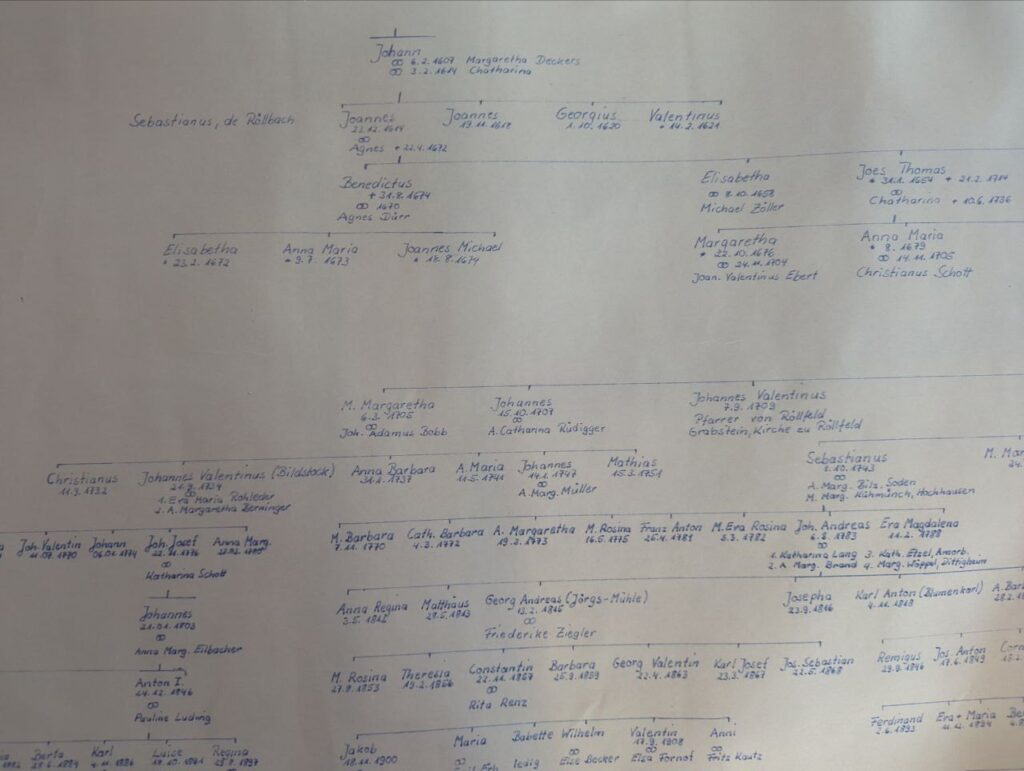 Johann
∞ 6.2.1607 Margaretha Deckers
∞ 3.2.1614 Chatharina
Sebastianus, de Röllbach
Joannes
23.12.1614
∞
Agnes + 22.4.1672
Joannes
19.11.1618
Georgius
1.10.1620
Valentinus
* 14.2.1621
Benedictus
+ 31.8.1674
∞ 1670
Agnes Dürr
Elisabetha
∞ 8.10.1658
Michael Zöller
Joes Thomas
* 31.1.1654 + 21.2.1714
∞
Chatharina + 10.6.1736
Elisabetha
* 23.2.1672
Anna Maria
* 9.7.1673
Joannes Michael
* 18.8.1674
Margaretha
* 22.10.1676
∞ 24.11.1704
Joan. Valentinus Ebert
Anna Maria
* 8.1679
∞ 14.11.1705
Christianus Schott
M. Margaretha
6.3.1705
∞
Joh. Adamus Bobb
Johannes
15.10.1707
∞
A. Catharina Rüdigger
Johannes Valentinus
7.9.1709
Pfarrer von Röllfeld
Grabstein, Kirche zu Röllfeld
Christianus
11.3.1732
Johannes Valentinus (Bildstock)
21.9.1734
∞
1. Eva Maria Rohleder
2. A. Margaretha Berninger
Anna Barbara
31.1.1737
A. Maria
11.5.1741
Johannes
14.1.1747
∞
A. Marg. Müller
Mathias
15.3.1751
Sebastianus
1.10.1743
∞
A. Marg. Bilz. Soden
M. Marg. Kühmünch, Hochhausen
M. Mar
24.
Joh. Valentin
11.07.1770
Johann
06.04.1774
Joh. Josef
22.11.1776
∞
Katharina Schott
Anna Marg.
M. Barbara
7.11.1770
Cath. Barbara
4.3.1772
A. Margaretha
19.2.1773
M. Rosina
16.5.1775
Franz Anton
26.4.1781
M. Eva Rosina
3.3.1782
Joh. Andreas
6.3.1783
∞
1. Katharina Lang 3. Kath. Etzel, Amorb.
2. A Marg. Brand 4. Marg. Wöppel, Dittigheim
Eva Magdalena
11.2.1788
Johannes
21.01.1803
∞
Anna Marg. Eilbacher
Anna Regina
3.5.1812
Matthäus
29.5.1813
Georg Andreas (Jörgs-Mühle)
13.2.1815
∞
Friederike Ziegler
Josepha
23.9.1816
Karl Anton (Blumenkarl)
4.11.1818
A. Bar
28.2.18
Anton I.
24.12.1846
∞
Pauline Ludwig
M. Rosina
27.9.1853
Theresia
19.2.1856
Constantin
22.11.1857
∞
Rita Renz
Barbara
25.9.1859
Georg Valentin
22.4.1863
Karl Josef
23.3.1867
Jos. Sebastian
22.5.1868
Remigius
29.9.1846
Jos. Anton
17.6.1849
Corn
15.2.
Berta
Karl
4.11.1886
Luise
Regina
Jakob
18.11.1900
Maria
∞
Babette
ledig
Wilhelm
∞
Else Becker
Valentin
17.9.1908
∞
Elsa Fornof
Anni
∞
Fritz Kautz
Ferdinand
2.6.1893
Eva + Maria
11.12.1894
Be